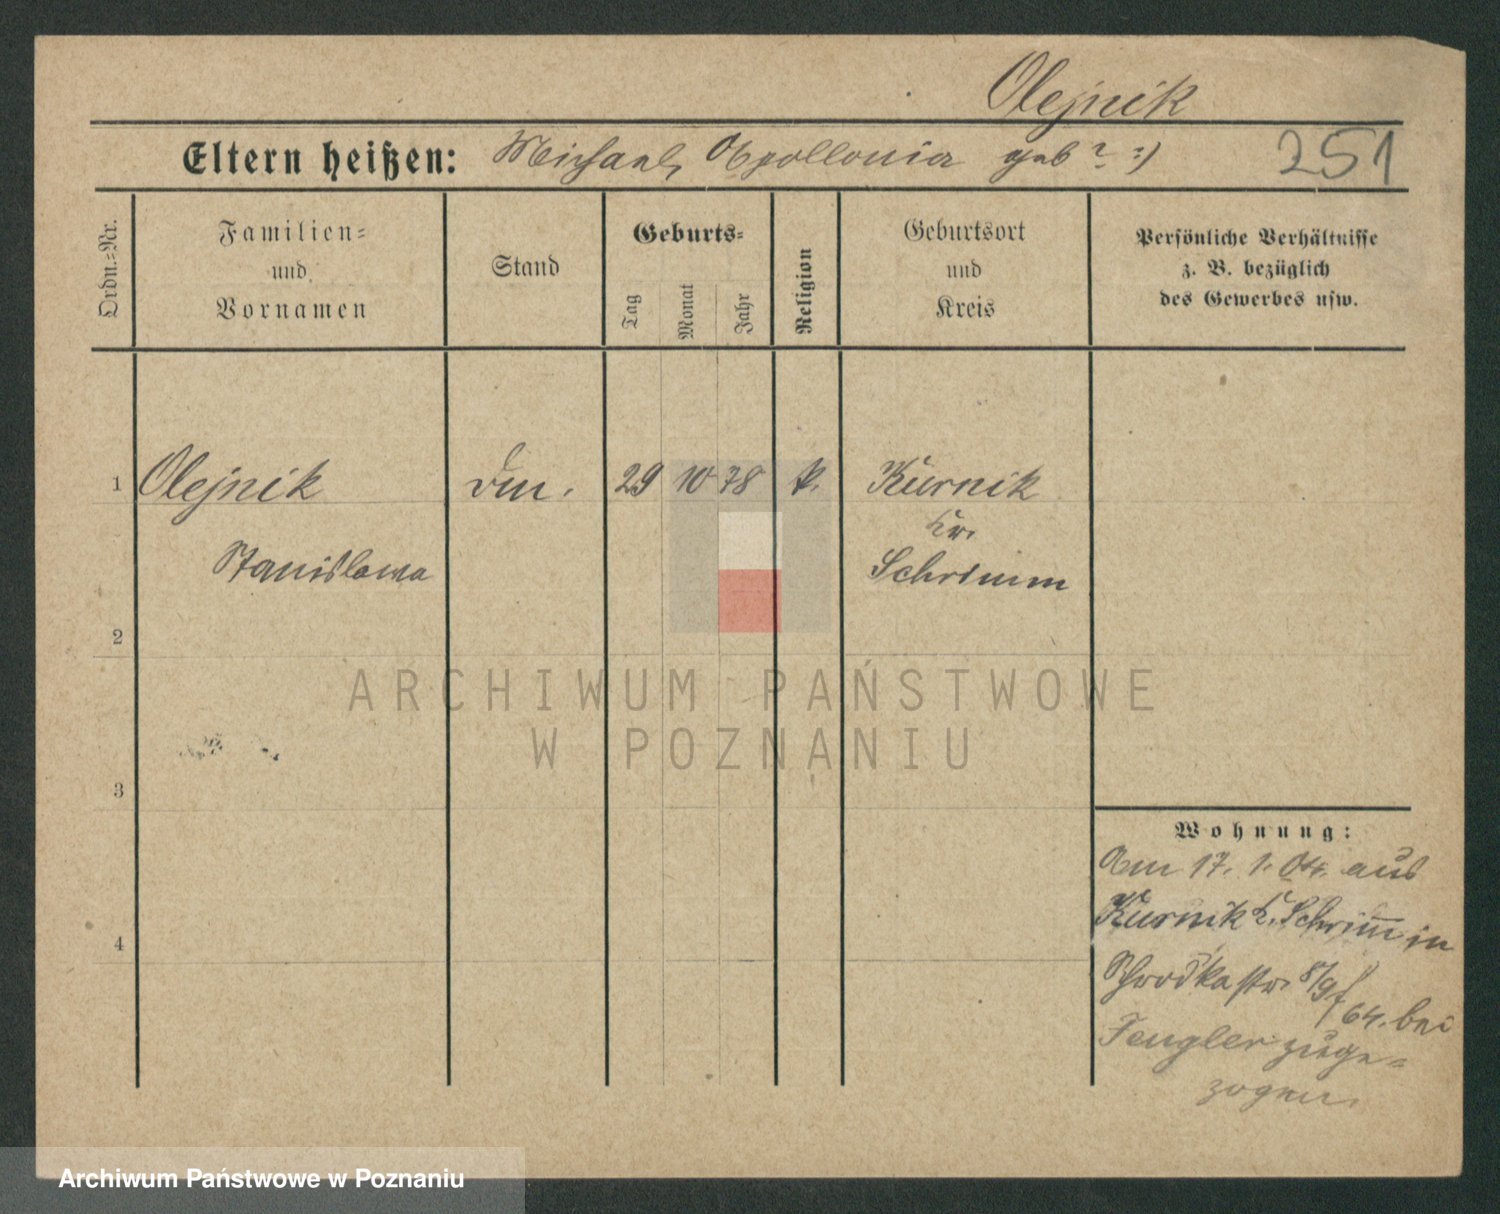 Olejnik
Eltern heißen: Michael, Apollonia geb ? :)
251
Ordn.-Nr.
Familien-
und
Vornamen
Stand
Geburts-
Tag
Monat
Jahr
Religion
Geburtsort
und
Kreis
Persönliche Verhältnisse
z. B. bezüglich
des Gewerbes usw.
1 Olejnik 29 10 78 k. Kurnik
Kr.
Stanislawa Schrimm
2
ARCHIWUM PAŃSTWOWE
W POZNANIU
3
Wohnung:
Am 17. 1. 04. aus
Kurnik K. Schrim̅ in
4
Schrodkastr 8/9
64. bei
Fengler zuge-
zogen.
Archiwum Państwowe w Poznaniu